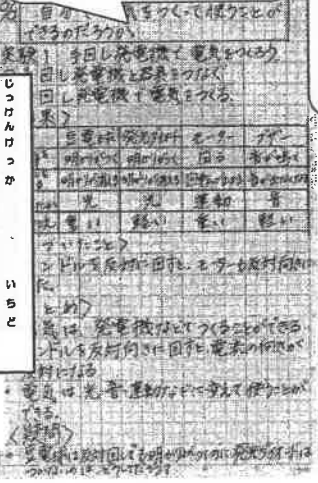 自分
をつくって使うことが
できるのだろうか。
実験1 手回し発電機で電気をつくろう
回し発電機と器具をつなぐ
回し発電機で電気をつくる。
果〉
豆電球 発光ダイオード モーター ブザー
明かりがつく 明かりがつく 回る 音が出る
光 光 運動 音
重い 軽い 重い 軽い
づいたこと〉
ンドルを反対に回すと、モーターも反対向きに
た。
とめ〉
気は、発電機などでつくることができる
ンドルを反対向きに回すと、電流の向きが
対になる
・電気は光、音、運動などに変えて使うことが
できる。
〈疑問〉
・豆電球は反対に回しても明かりがつくのに発光ダイオードは
つかないのは、どうしてだろう
じっけんけっか 、 いちど